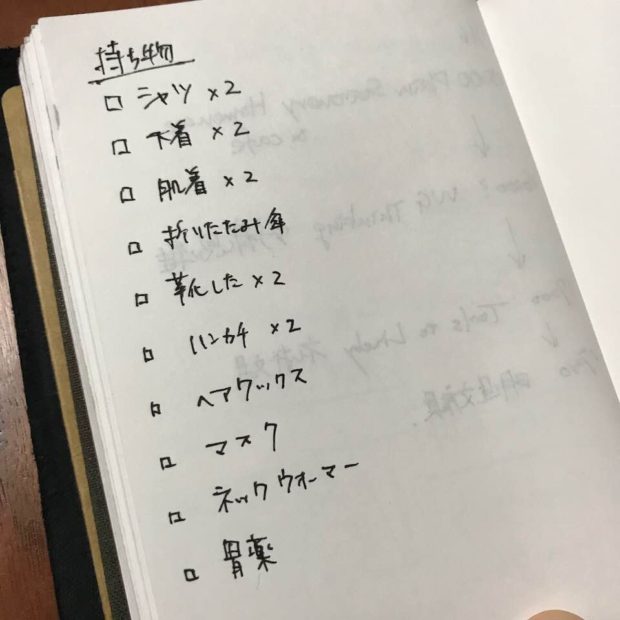 持ち物
□ シャツ ×2
□ 下着 ×2
□ 肌着 ×2
□ 折りたたみ傘
□ 靴した ×2
□ ハンカチ ×2
□ ヘアワックス
□ マスク
□ ネックウォーマー
□ 胃薬